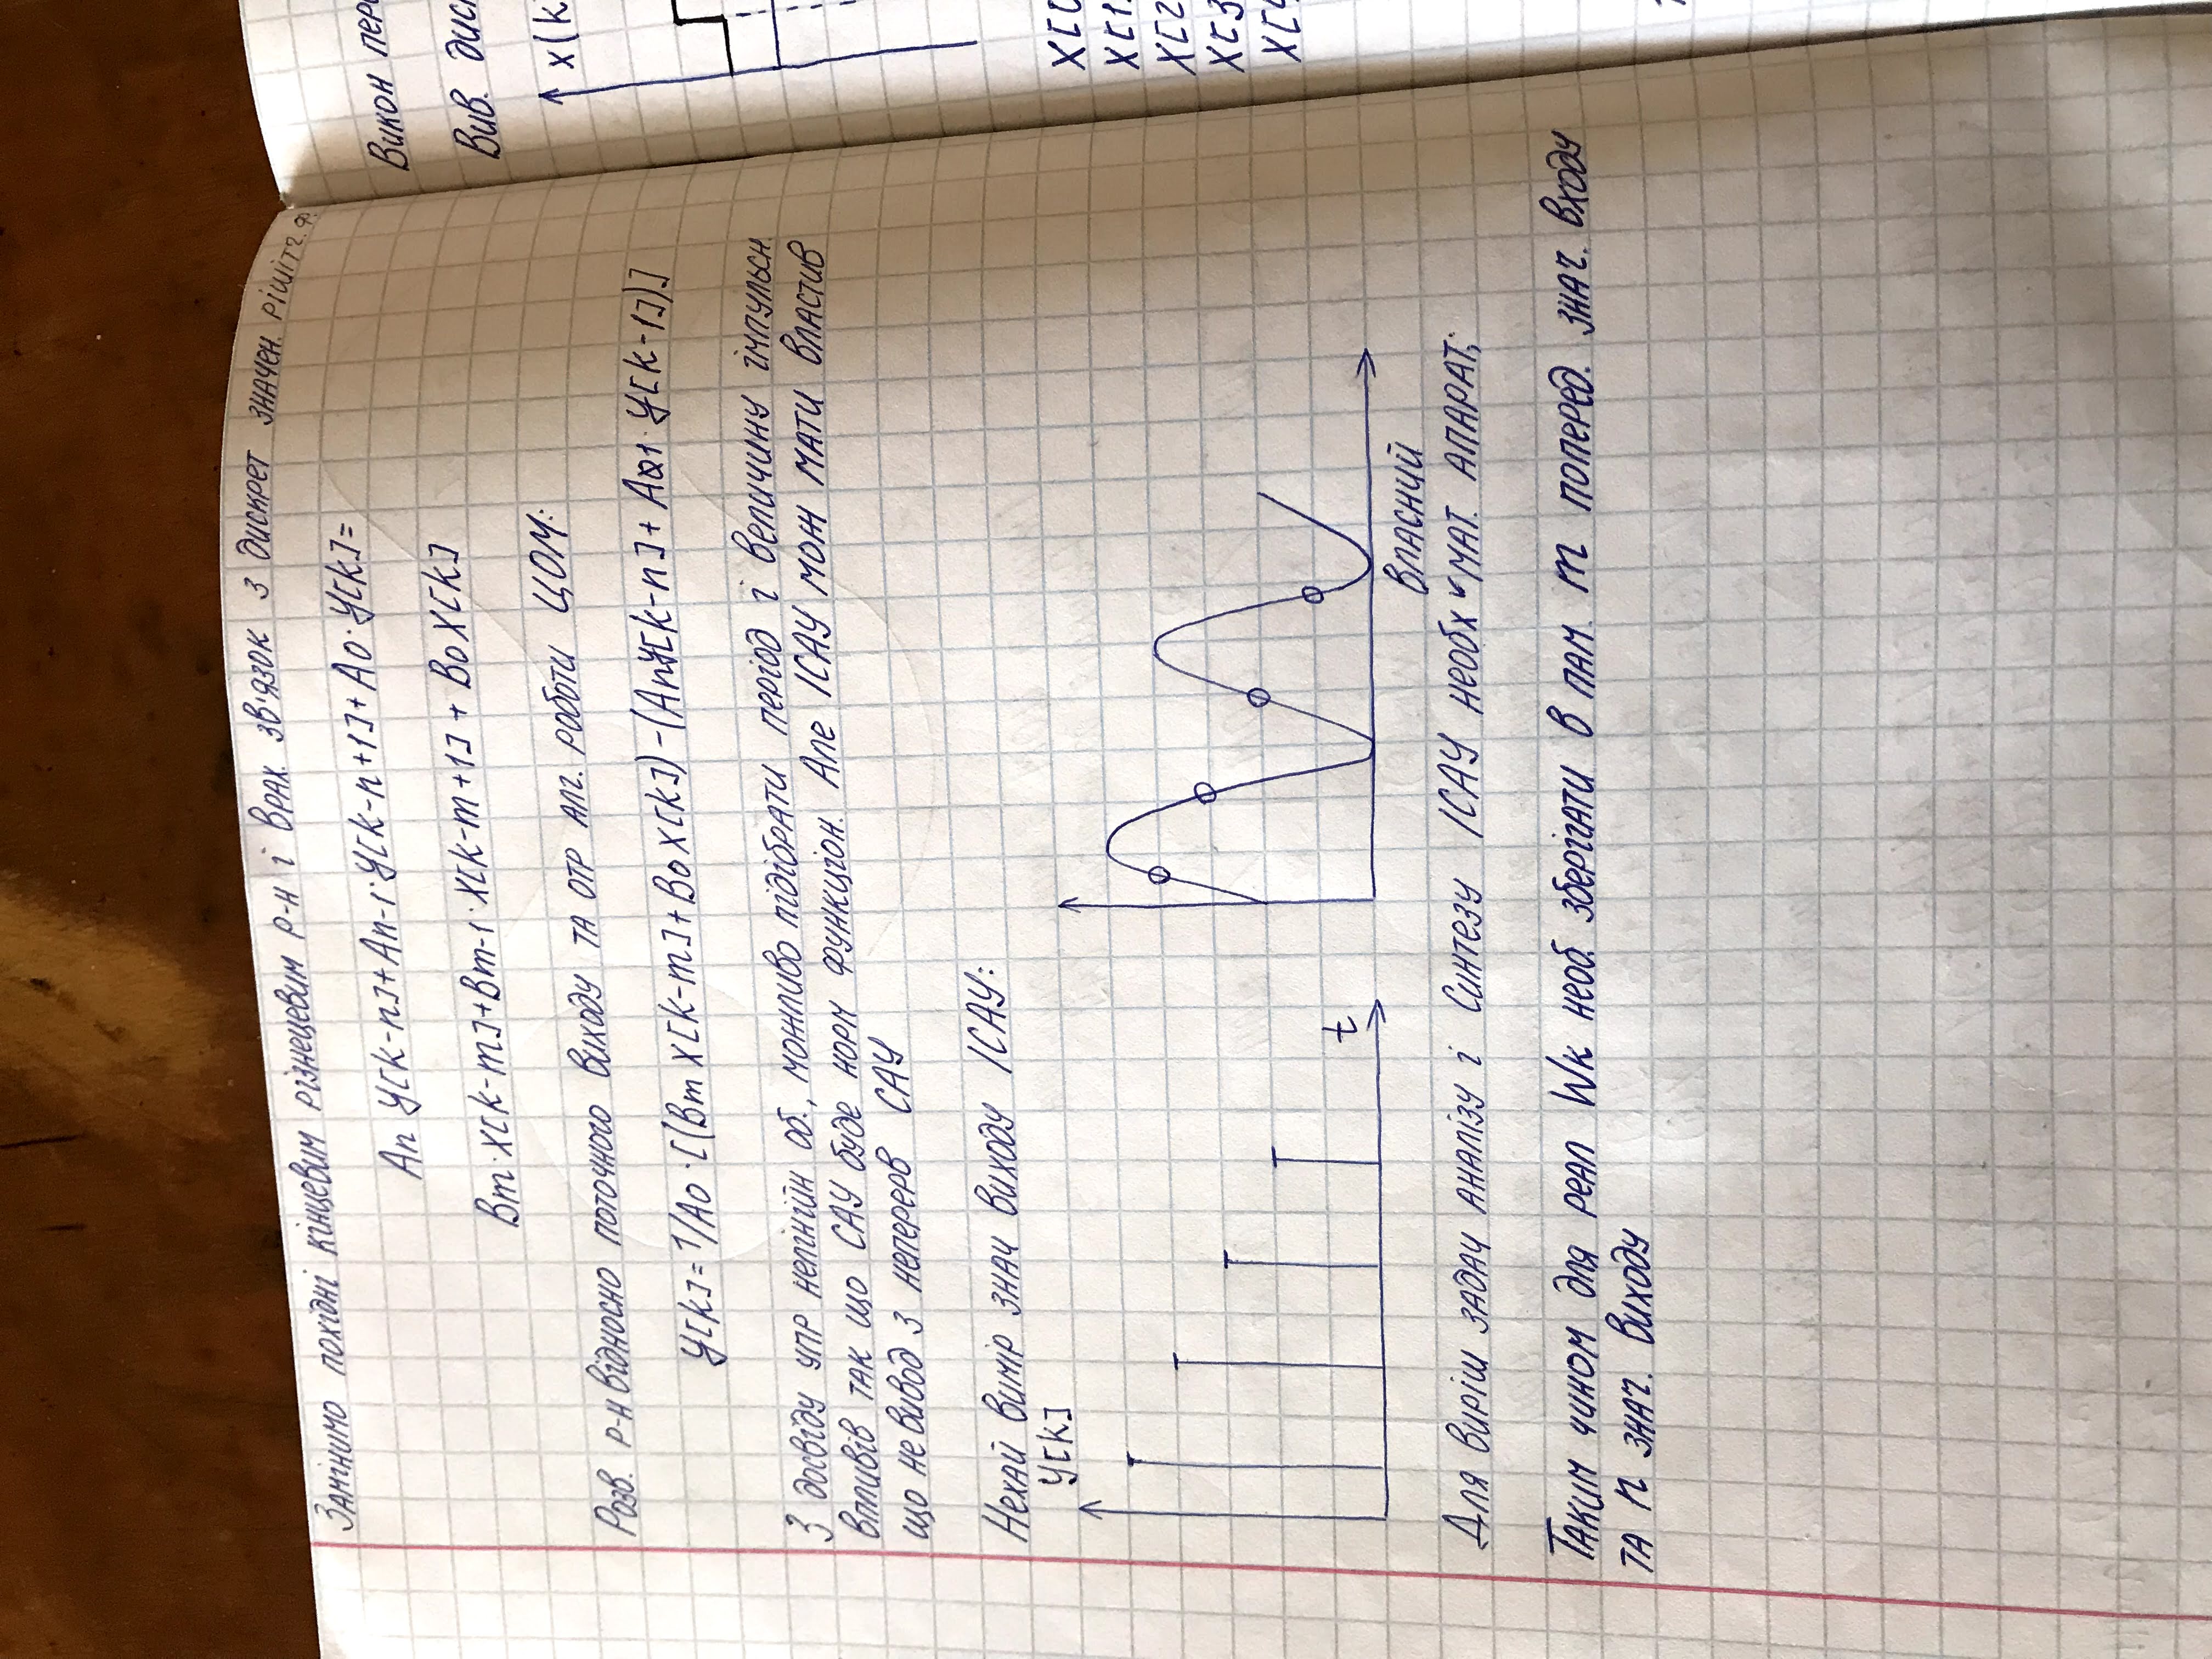 Замінимо похідні кінцевим різнецевим р-н і врах. зв'язок з дискрет значен. рішітч. ф.
An Y[k-n]+An-1·Y[k-n+1]+A0·Y[k]=
Bm·X[k-m]+Bm-1·X[k-m+1]+B0X[k]
Розв. р-н відносно поточного виходу та отр алг. роботи ЦОМ:
Y[k]=1/A0·[(BmX[k-m]+B0X[k])-(AnY[k-n]+A1·Y[k-1])]
З досвіду упр нелінійн об., можливо підібрати період і величину імпульсн.
впливів так що САУ буде норм функціон. Але ІСАУ мож мати властив
що не вивод з неперерв САУ
Нехай вимір знач виходу ІСАУ:
Y[k]
t
власний
Для виріш задач аналізу і синтезу ІСАУ необх мат. апарат;
Таким чином для реал Wк необ. зберігати в пам. m поперед. знач. входу
та n знач. виходу
Викон
Вив.
x(k
X[0
X[1
X[2
X[3
X[4